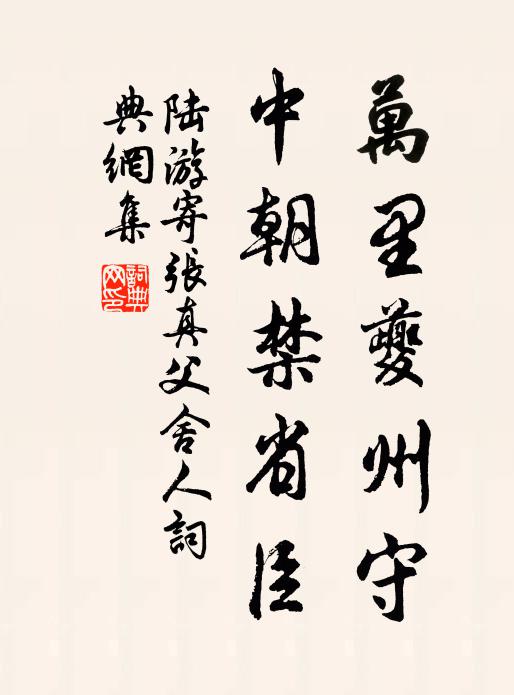 萬里夔州守
中朝禁省臣
陸游寄張真父舍人詞
典網集
詞典
网印